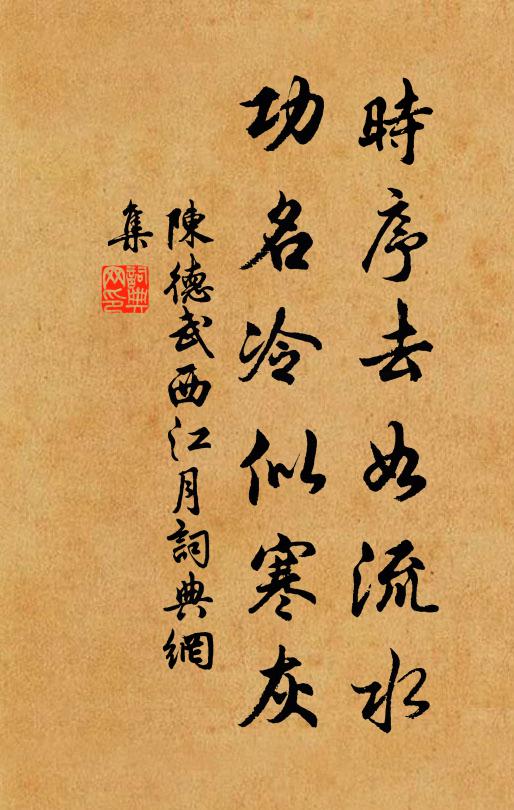 時序去如流水
功名冷似寒灰
陳德武西江月詞典網
集
詞典網印